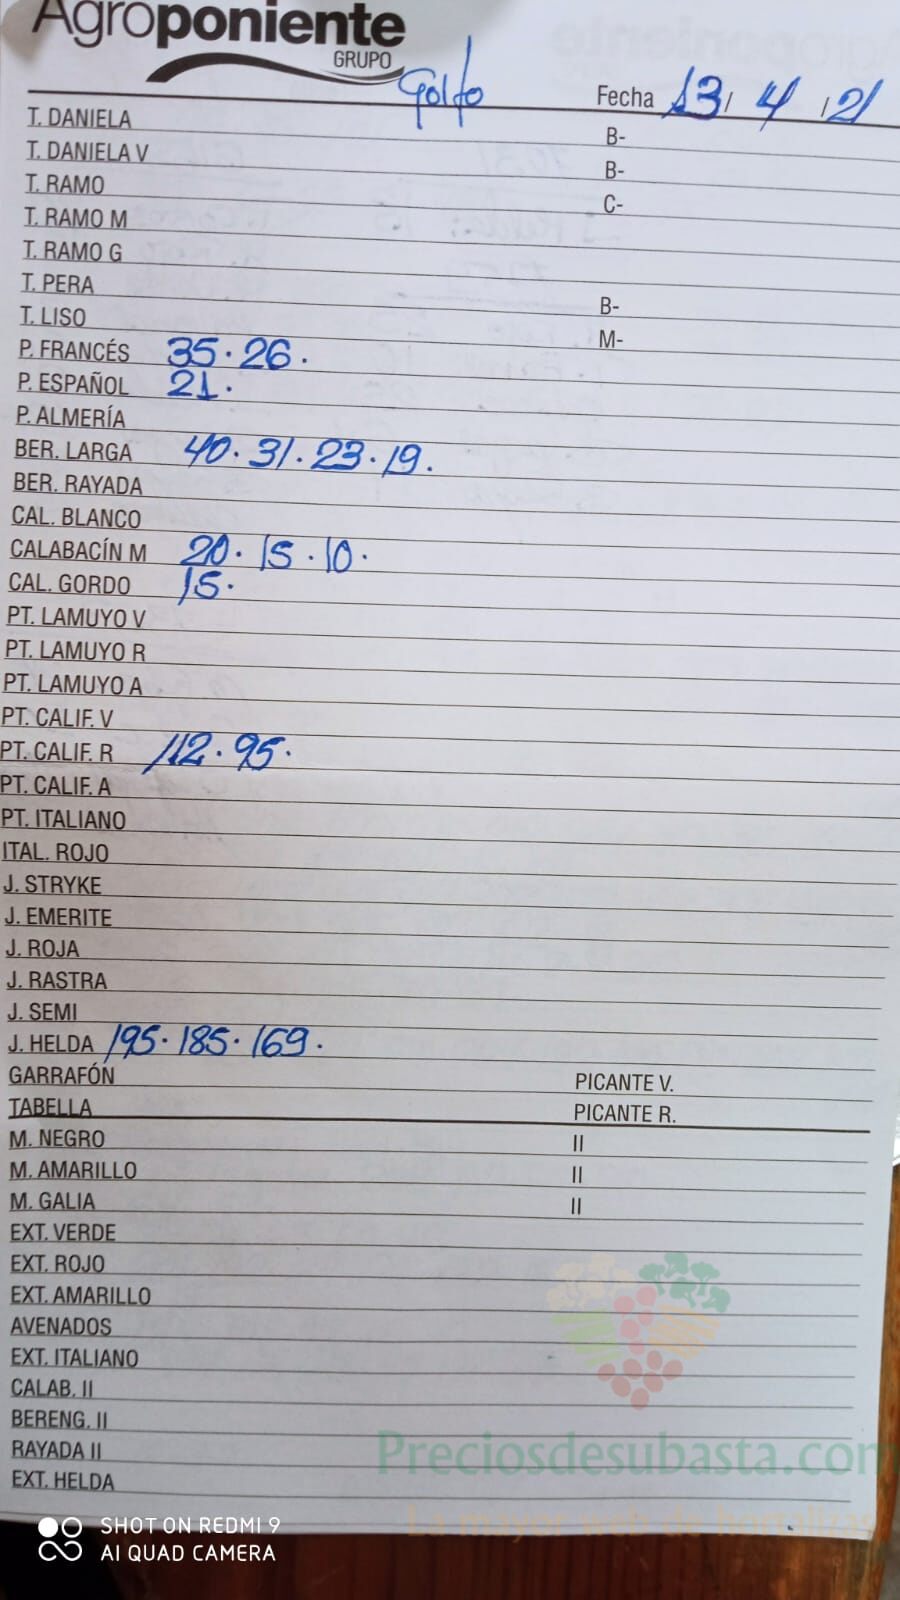 Agroponiente
GRUPO
Golfo
Fecha 13/ 4 /21
T. DANIELA B-
T. DANIELA V B-
T. RAMO C-
T. RAMO M
T. RAMO G
T. PERA B-
T. LISO M-
P. FRANCÉS 35. 26.
P. ESPAÑOL 21.
P. ALMERÍA
BER. LARGA 40. 31. 23. 19.
BER. RAYADA
CAL. BLANCO
CALABACÍN M 20. 15. 10.
CAL. GORDO 15.
PT. LAMUYO V
PT. LAMUYO R
PT. LAMUYO A
PT. CALIF. V
PT. CALIF. R 112. 95.
PT. CALIF. A
PT. ITALIANO
ITAL. ROJO
J. STRYKE
J. EMERITE
J. ROJA
J. RASTRA
J. SEMI
J. HELDA 195. 185. 169.
GARRAFÓN PICANTE V.
TABELLA PICANTE R.
M. NEGRO II
M. AMARILLO II
M. GALIA II
EXT. VERDE
EXT. ROJO
EXT. AMARILLO
AVENADOS
EXT. ITALIANO
CALAB. II
BERENG. II
RAYADA II
EXT. HELDA
Preciosdesubasta.com
La mayor web de hortalizas
SHOT ON REDMI 9
AI QUAD CAMERA